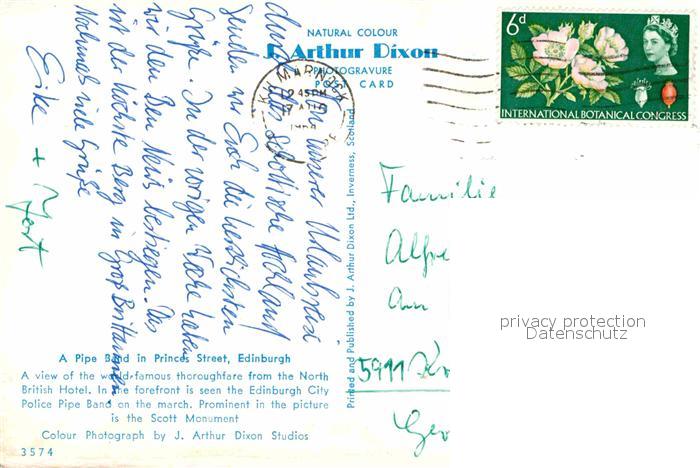 NATURAL COLOUR
J. Arthur Dixon
PHOTOGRAVURE
POST CARD
KILMARNOCK
2 45 PM
6d
INTERNATIONAL BOTANICAL CONGRESS
Von unserer Urlaubsreise
durch das schottische Hochland
senden wir Euch die herzlichsten
Grüße. In der vorigen Woche haben
wir den Ben Nevis bestiegen. Das
ist der höchste Berg in Groß Britannien.
Nochmals viele Grüße
Eike
+ Gert
Familie
Alfre
An
5911
Ger
privacy protection
Datenschutz
Printed and Published by J. Arthur Dixon Ltd., Inverness, Scotland
A Pipe Band in Princes Street, Edinburgh
A view of the world-famous thoroughfare from the North
British Hotel. In the forefront is seen the Edinburgh City
Police Pipe Band on the march. Prominent in the picture
is the Scott Monument
Colour Photograph by J. Arthur Dixon Studios
3574